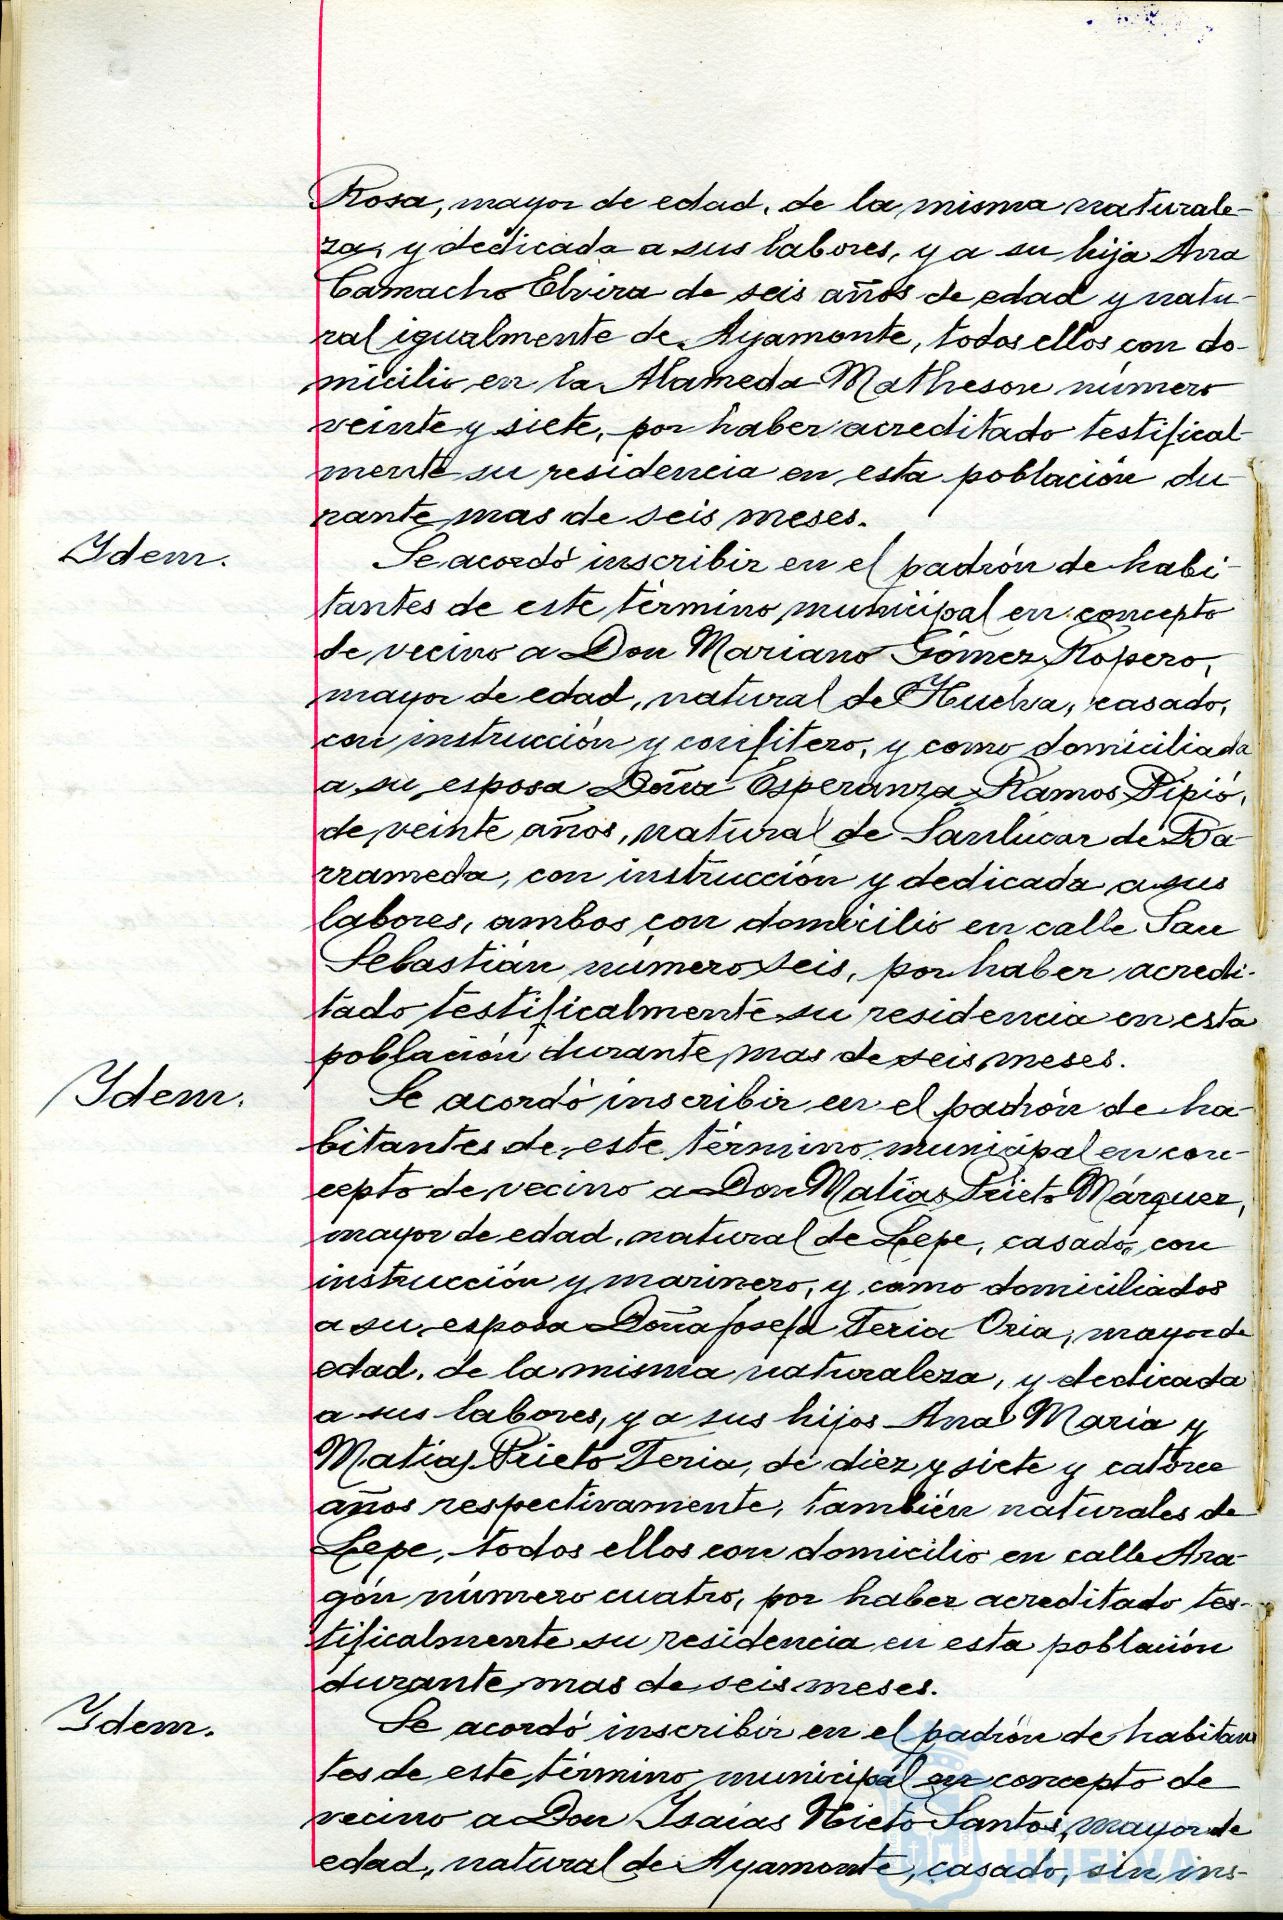 Rosa, mayor de edad, de la misma naturale-
za, y dedicada a sus labores, y a su hija Ana
Camacho Elvira de seis años de edad y natu-
ral igualmente de Ayamonte, todos ellos con do-
micilio en la Alameda Matheson número
veinte y siete, por haber acreditado testifical-
mente su residencia en esta población du-
rante mas de seis meses.
Ydem.
Se acordó inscribir en el padrón de habi-
tantes de este término municipal en concepto
de vecino a Don Mariano Gómez Ropero,
mayor de edad, natural de Huelva, casado,
con instrucción y confitero, y como domiciliada
a su esposa Doña Esperanza Ramos Pipió,
de veinte años, natural de Sanlúcar de Ba-
rrameda, con instrucción y dedicada a sus
labores, ambos con domicilio en calle San
Sebastián número seis, por haber acredi-
tado testificalmente su residencia en esta
población durante mas de seis meses.
Ydem.
Se acordó inscribir en el padrón de ha-
bitantes de este término municipal en con-
cepto de vecino a Don Matías Prieto Márquez,
mayor de edad, natural de Lepe, casado, con
instrucción y marinero, y como domiciliados
a su esposa Doña Josefa Feria Oria, mayor de
edad, de la misma naturaleza, y dedicada
a sus labores, y a sus hijos Ana María y
Matias Prieto Feria, de diez y siete y catorce
años respectivamente, también naturales de
Lepe, todos ellos con domicilio en calle Ara-
gón número cuatro, por haber acreditado tes-
tificalmente su residencia en esta población
durante mas de seis meses.
Ydem.
Se acordó inscribir en el padrón de habitan
tes de este término municipal en concepto de
vecino a Don Isaías Nieto Santos, mayor de
edad, natural de Ayamonte, casado, sin ins-
HUELVA